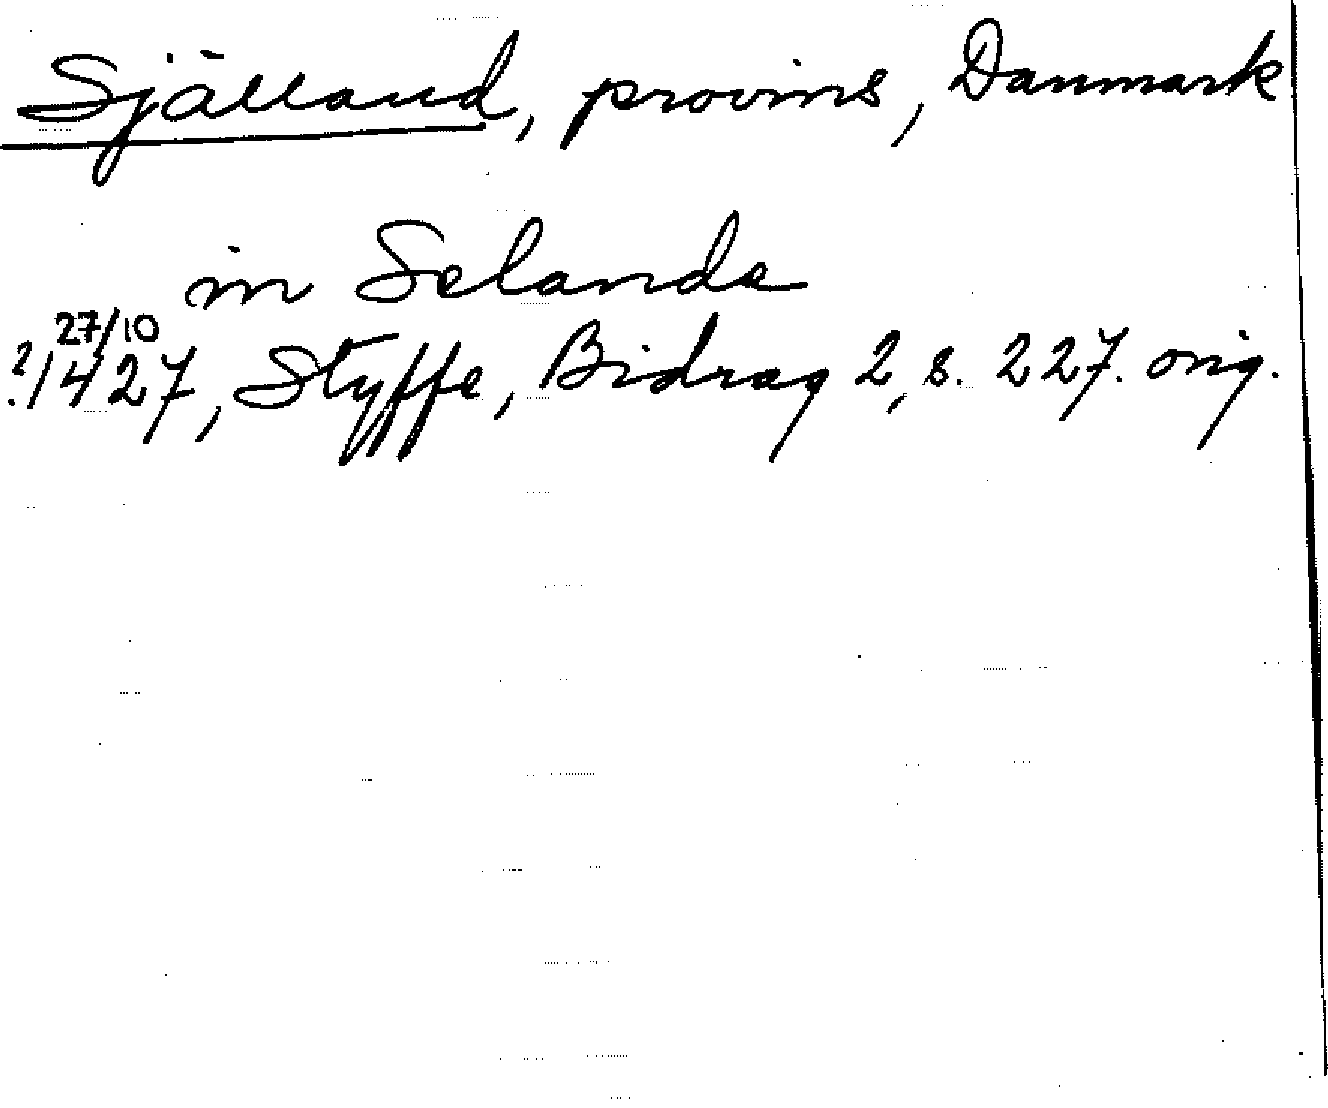 Själland, provins, Danmark
in Selande
27/10
? 1427, Styffe, Bidrag 2, s. 227. orig.